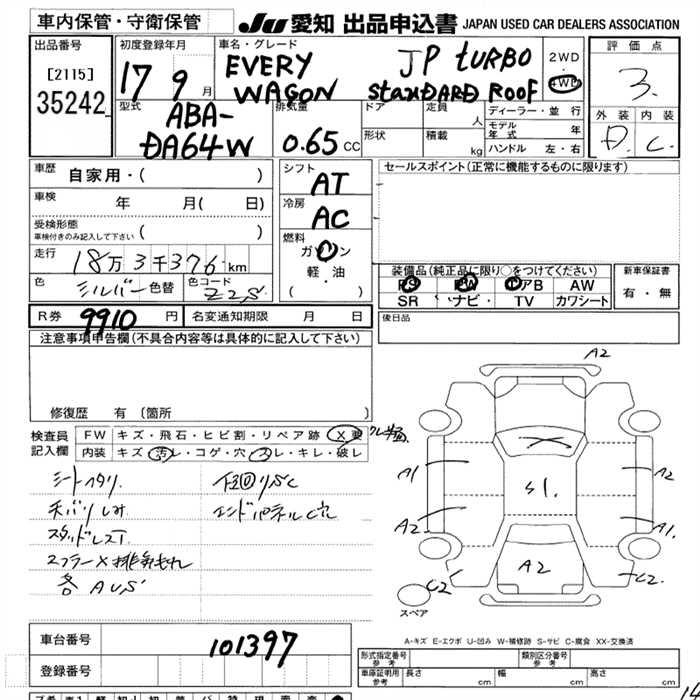 車内保管・守衛保管
JU 愛知 出品申込書 JAPAN USED CAR DEALERS ASSOCIATION
出品番号 初度登録年月 車名・グレード
[2115]
35242
17 9 月
EVERY JP tURBO
WAGON StanDARD ROOF
2WD
4WD
評価点
3.
外装 内装
D. C.
型式
ABA-
DA64W
排気量
0.65 CC
ドア 定員 人
形状 積載 kg
ディーラー・並行
モデル年式 年
ハンドル 左・右
車歴 自家用・( )
車検 年 月( 日)
受検形態
車検付きのみ記入して下さい ( )
走行 18万3千376 km
色 シルバー 色替 色コード Z2S
シフト
AT
冷房
AC
燃料
ガソリン
軽・油
( )
セールスポイント(正常に機能するものに限ります)
装備品(純正品に限り○をつけてください)
PS PW エアB AW
SR ナビ・ TV カワシート
新車保証書
有・無
R券 9910 円 名変通知期限 月 日
後日品
注意事項申告欄(不具合内容等は具体的に記入して下さい)
修復歴 有 〔箇所 〕
検査員記入欄
FW キズ・飛石・ヒビ割・リペア跡 X要
内装 キズ・汚レ・コゲ・穴・スレ・キレ・破レ
シートヘタリ 下回りSC
天バリしみ エンドパネルC穴
スタッドレス
マフラー×排気もれ
各 AUS
A2
A1 A2
S1.
A2 A1
A2
C2 C2
スペア
A-キズ E-エクボ U-凹み W-補修跡 S-サビ C-腐食 XX-交換済
車台番号 101397
登録番号
形式指定番号 参考 類別区分番号 参考
車庫証明用 参考 長さ cm 幅 cm 高さ cm